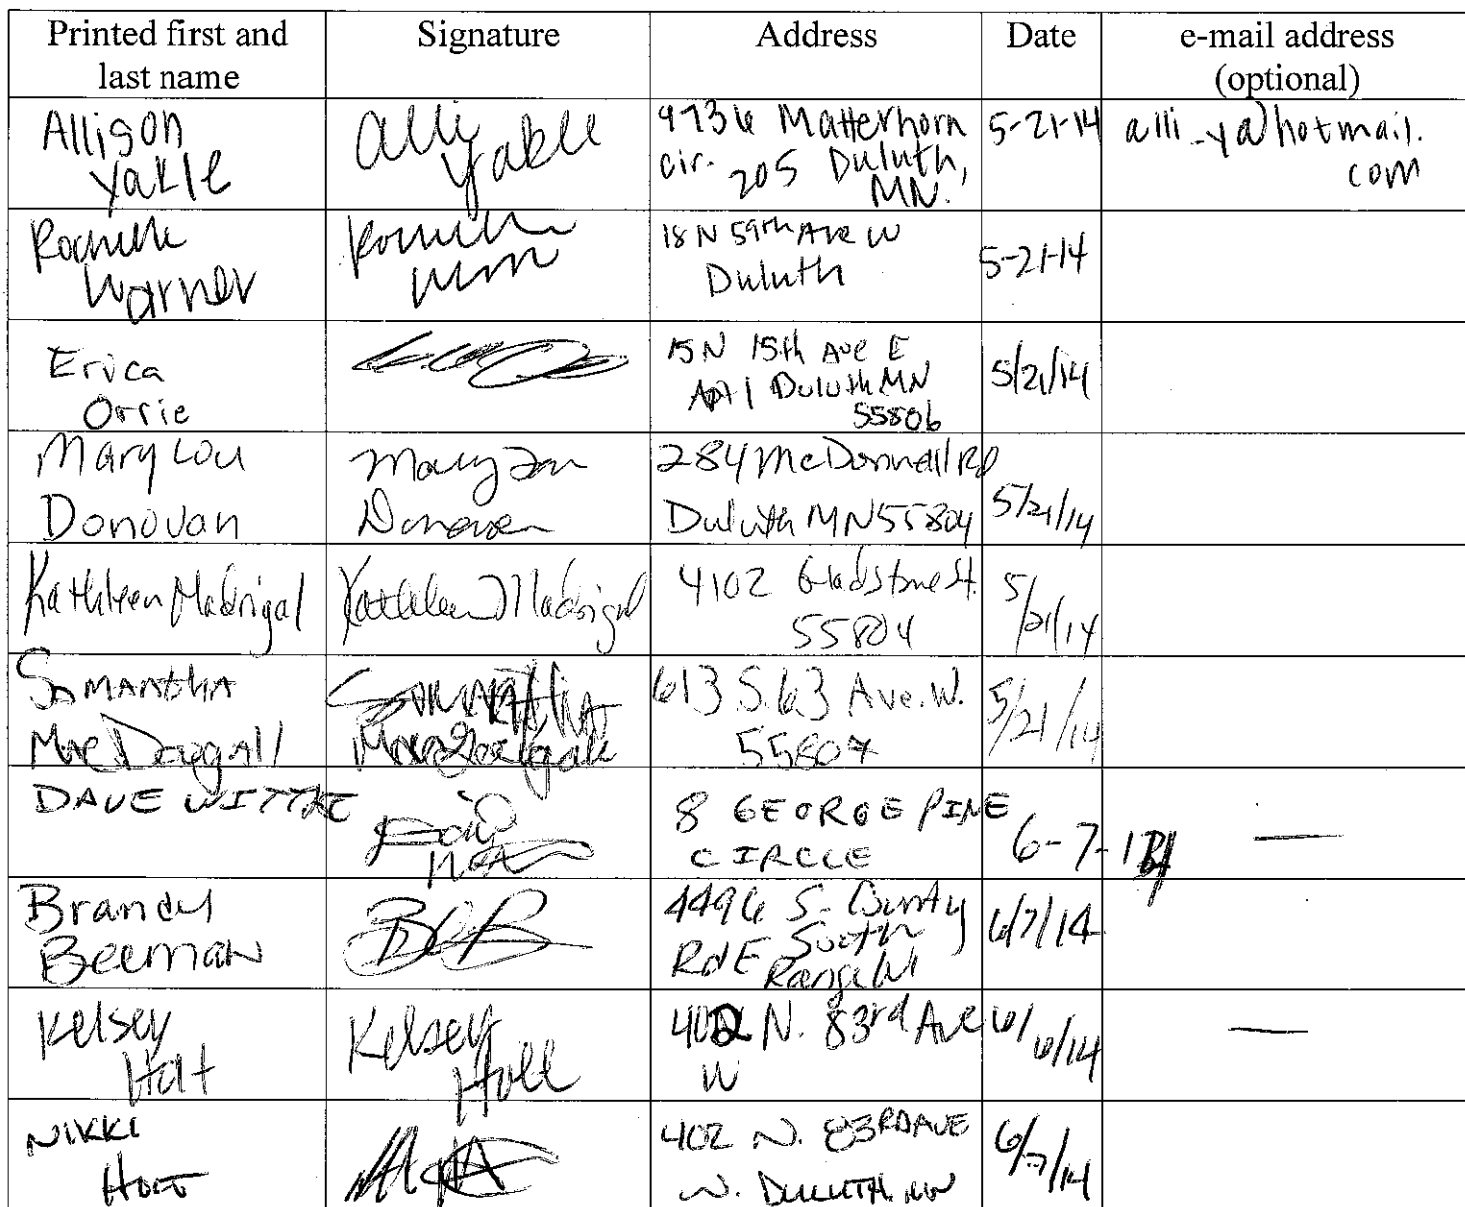 Printed first and last name Signature Address Date e-mail address (optional)
Allison Yakle Alli Yakle 9736 Matterhorn cir. 205 Duluth, MN. 5-21-14 alli_ya@hotmail.com
Rochelle Warner 18 N 59th Ave W Duluth 5-21-14
Erica Orrie 15 N 15th Ave E Apt 1 Duluth MN 55806 5/21/14
Mary Lou Donovan Mary Lou Donovan 284 McDonnell RD Duluth MN 55804 5/21/14
Kathleen Madrigal Kathleen Madrigal 4102 Gladstone St. 55804 5/21/14
Samantha MacDougall Samantha 613 S. 63 Ave. W. 55807 5/21/14
DAVE WITTKE 8 GEORGE PINE CIRCLE 6-7-14 —
Brandy Beeman 4496 S. County Rd E South Range WI 6/7/14
Kelsey Holt Kelsey Holt 402 N. 83rd Ave W 6/6/14 —
NIKKI HOLT 402 N. 83RD AVE W. DULUTH MN 6/7/14